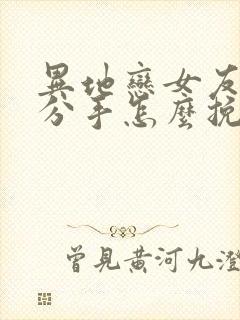 異地戀女友
分手怎麼挽
曾見黃河九澄